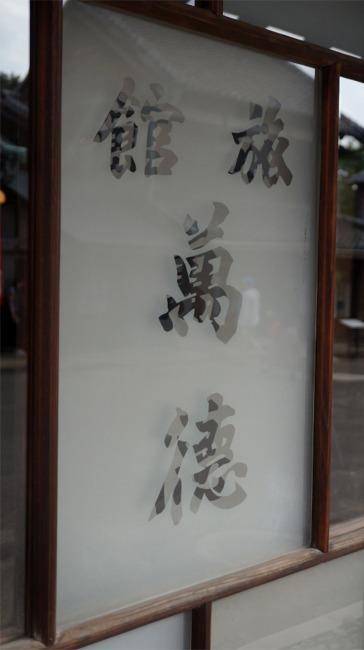 旅館
萬
德